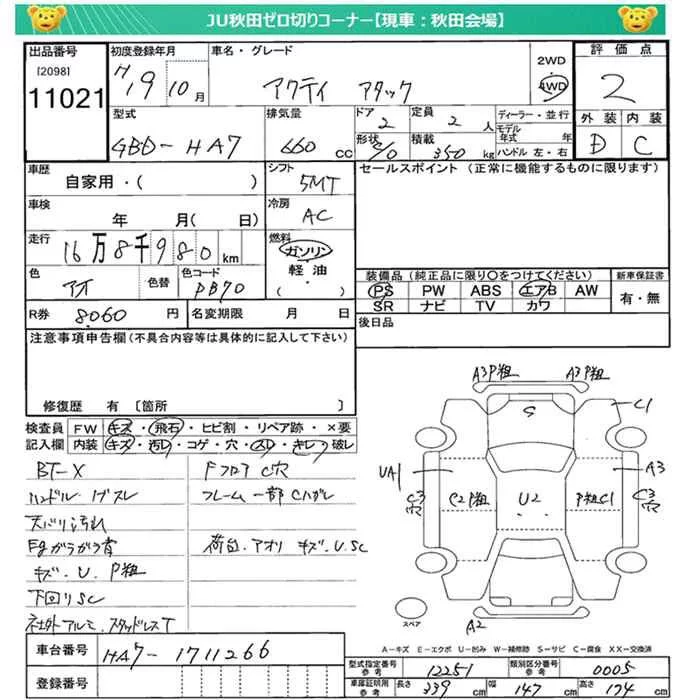 JU秋田ゼロ切りコーナー【現車：秋田会場】
出品番号
[2098]
11021
初度登録年月
H19 10月
車名・グレード
アクティ アタック
2WD
4WD
評価点
2
外装 内装
D C
型式
GBD-HA7
排気量
660 cc
ドア
2
形状
定員
2 人
積載
350 kg
ディーラー・並行
モデル年式 年
ハンドル 左・右
車歴
自家用・( )
シフト
5MT
セールスポイント（正常に機能するものに限ります）
車検
年 月( 日)
冷房
AC
走行
16万8千980km
燃料
ガソリン
軽油
( )
色
アオ
色替
色コード
PB70
装備品（純正品に限り○をつけてください）
新車保証書
PS PW ABS エアB AW
SR ナビ TV カワ
有・無
R券 8060 円
名変期限 月 日
後日品
注意事項申告欄（不具合内容等は具体的に記入して下さい）
修復歴 有 〔箇所 〕
検査員記入欄
FW キズ・飛石・ヒビ割・リペア跡・×要
内装 キズ・汚レ・コゲ・穴・スレ・キレ・破レ
BT-X
Fフロア C穴
ハンドル ゲスレ
フレーム一部Cハガレ
天バリ汚れ
Egガラガラ音
荷台.アオリ キズ.U.SC
キズ.U.P粗
下回りSC
社外アルミ.スタッドレスT
A3P粗
A3P粗
S
C1
UA1
A3
C3穴
C2P粗
U2
P粗C1
C3穴
A2
スペア
A－キズ E－エクボ U－凹み W－補修跡 S－サビ C－腐食 XX－交換済
車台番号
HA7-1711266
登録番号
型式指定番号参考
12251
類別区分番号
0005
車庫証明用参考
長さ 339cm 幅 147cm 高さ 174cm